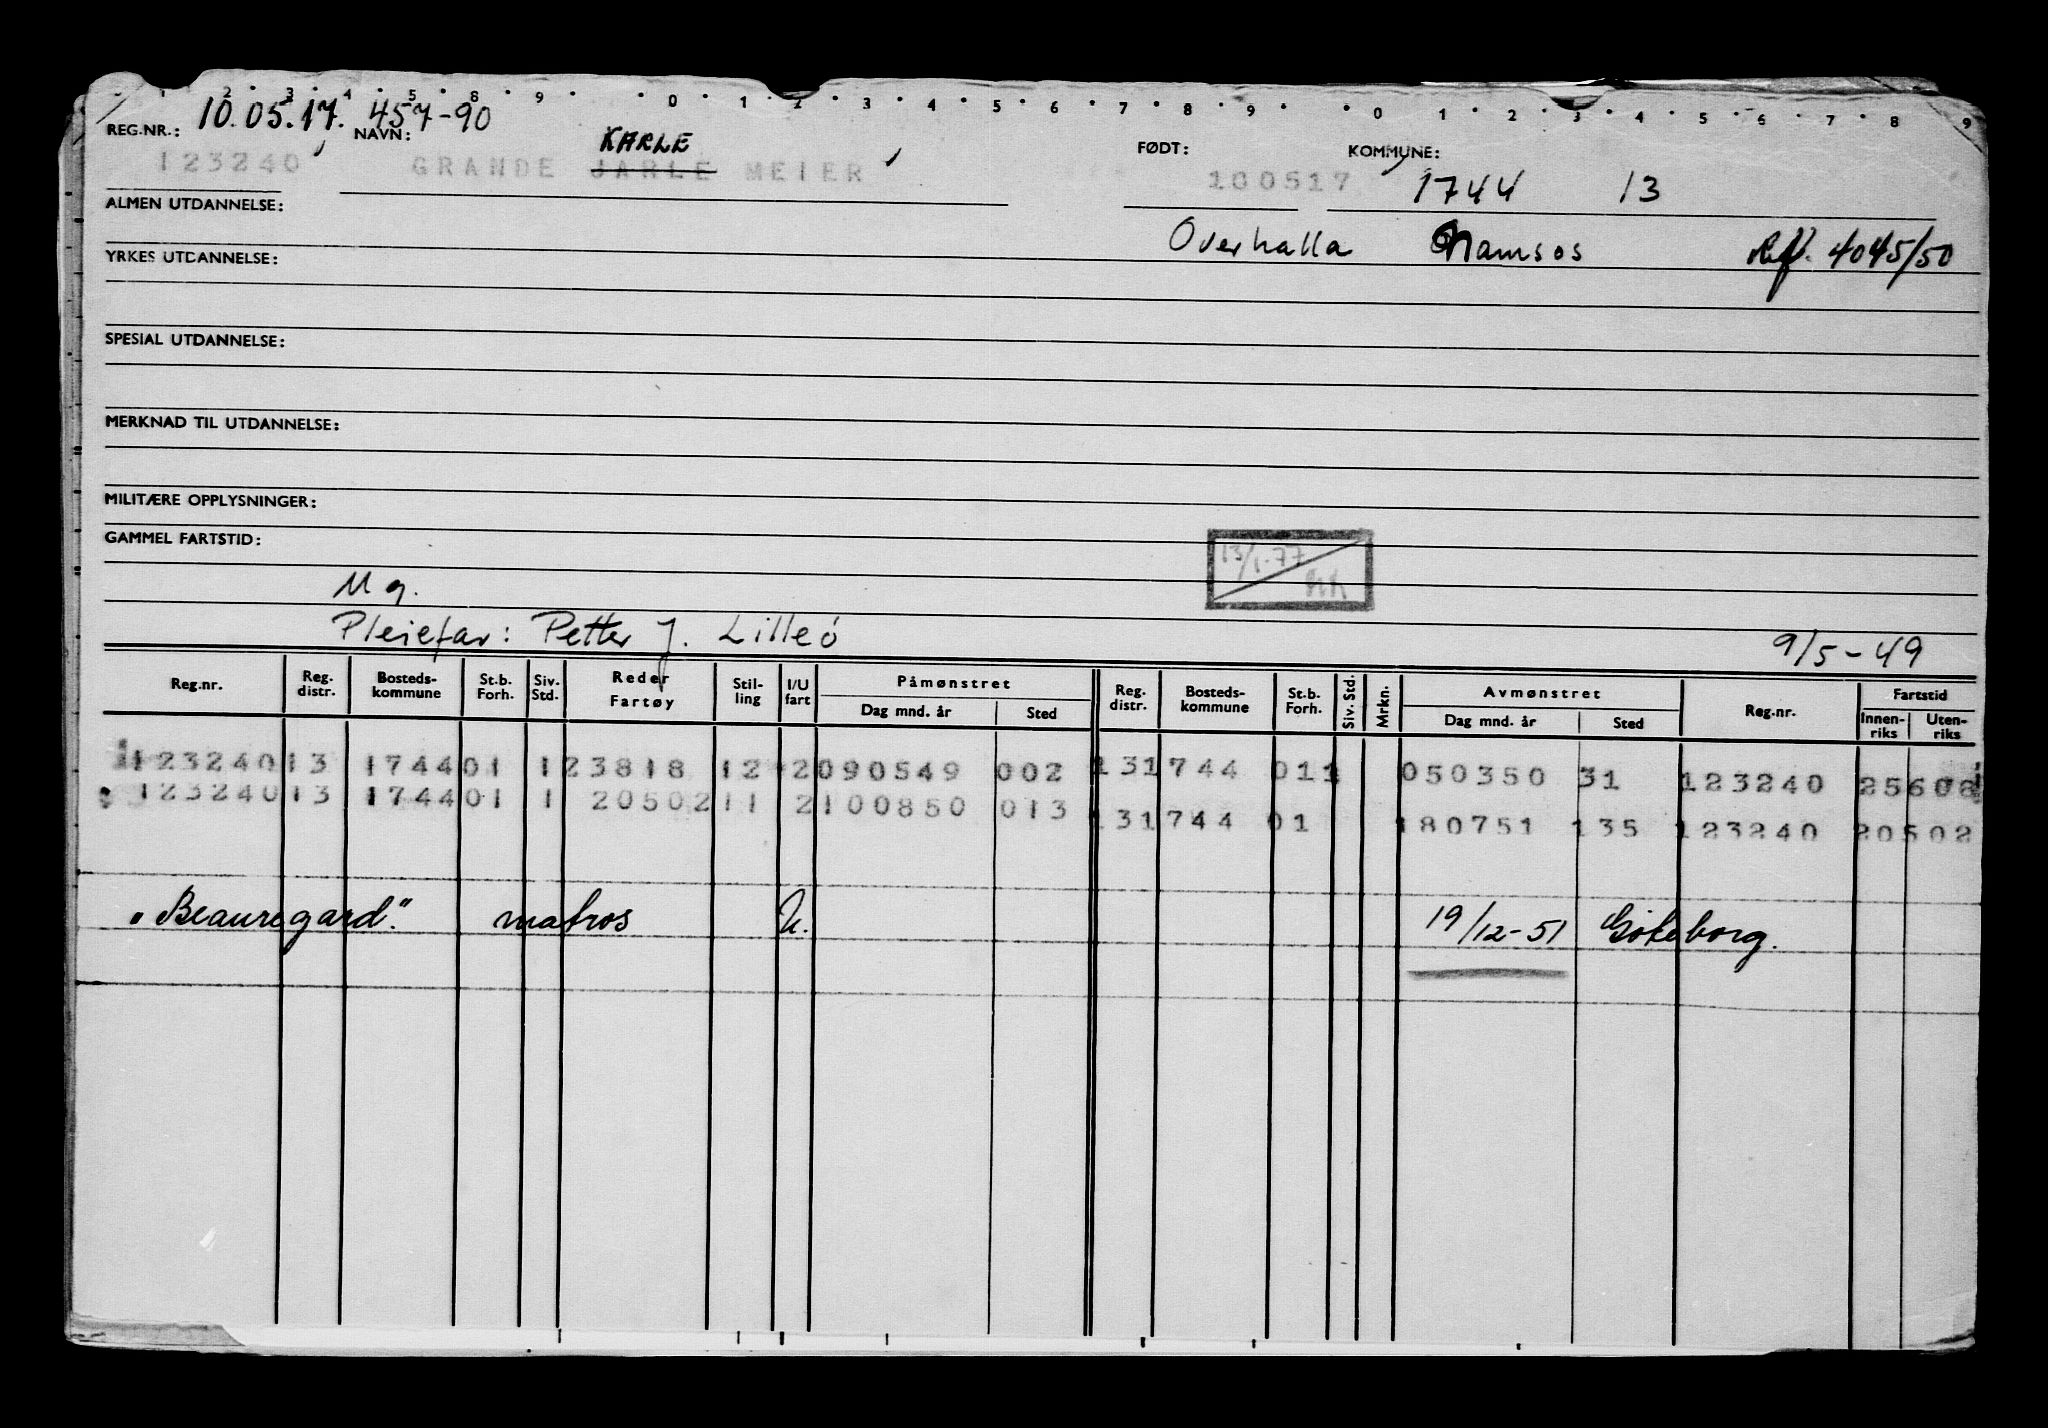 1 2 3 4 5 8 9 0 1 2 3 4 5 6 7 8 9 0 1 2 3 4 5 6 7 8 9
REG.NR.: 10.05.17. 457-90
NAVN: KARLE FØDT: KOMMYNE:
123240 GRANDE JARLE MEIER 100517 1744 13
ALMEN UTDANNELSE:
Overhalla Namsos Ref. 4045/50
YRKES UTDANNELSE:
SPESIAL UTDANNELSE:
MERKNAD TIL UTDANNELSE:
MILITÆRE OPPLYSNINGER:
GAMMEL FARTSTID:
13/1-77
Ug.
Pleiefar: Petter J. Lilleö 9/5-49
Reg.nr. Reg. distr. Bosteds-kommune St.b. Forh. Siv. Std. Reder Fartøy Stil-ling I/U fart Påmønstret Dag mnd. år Sted Reg. distr. Bosteds-kommune St.b. Forh. Siv. Std. Mrkn. Avmønstret Dag mnd. år Sted Reg.nr. Fartstid Innen-riks Uten-riks
123240 13 1744 01 1 23818 12 2 090549 002 13 1744 01 1 050350 31 123240 25608
123240 13 1744 01 1 20502 11 2 100850 013 13 1744 01 180751 135 123240 20502
"Beauregard." matros U. 19/12-51 Göteborg.